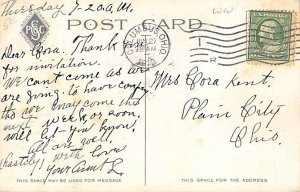 Thursday 7-20 A.M.
POST CARD
Dear Cora. Thanks
for invitation.
We cant come as we
are going to have comp
We may come this
next week or soon,
will let you know.
All are well,
(hastely) with love
your aunt L
COLUMBUS, OHIO
Mrs Cora Kent.
Plain City
Ohio.
THIS SPACE MAY BE USED FOR MESSAGE
THIS SPACE FOR THE ADDRESS